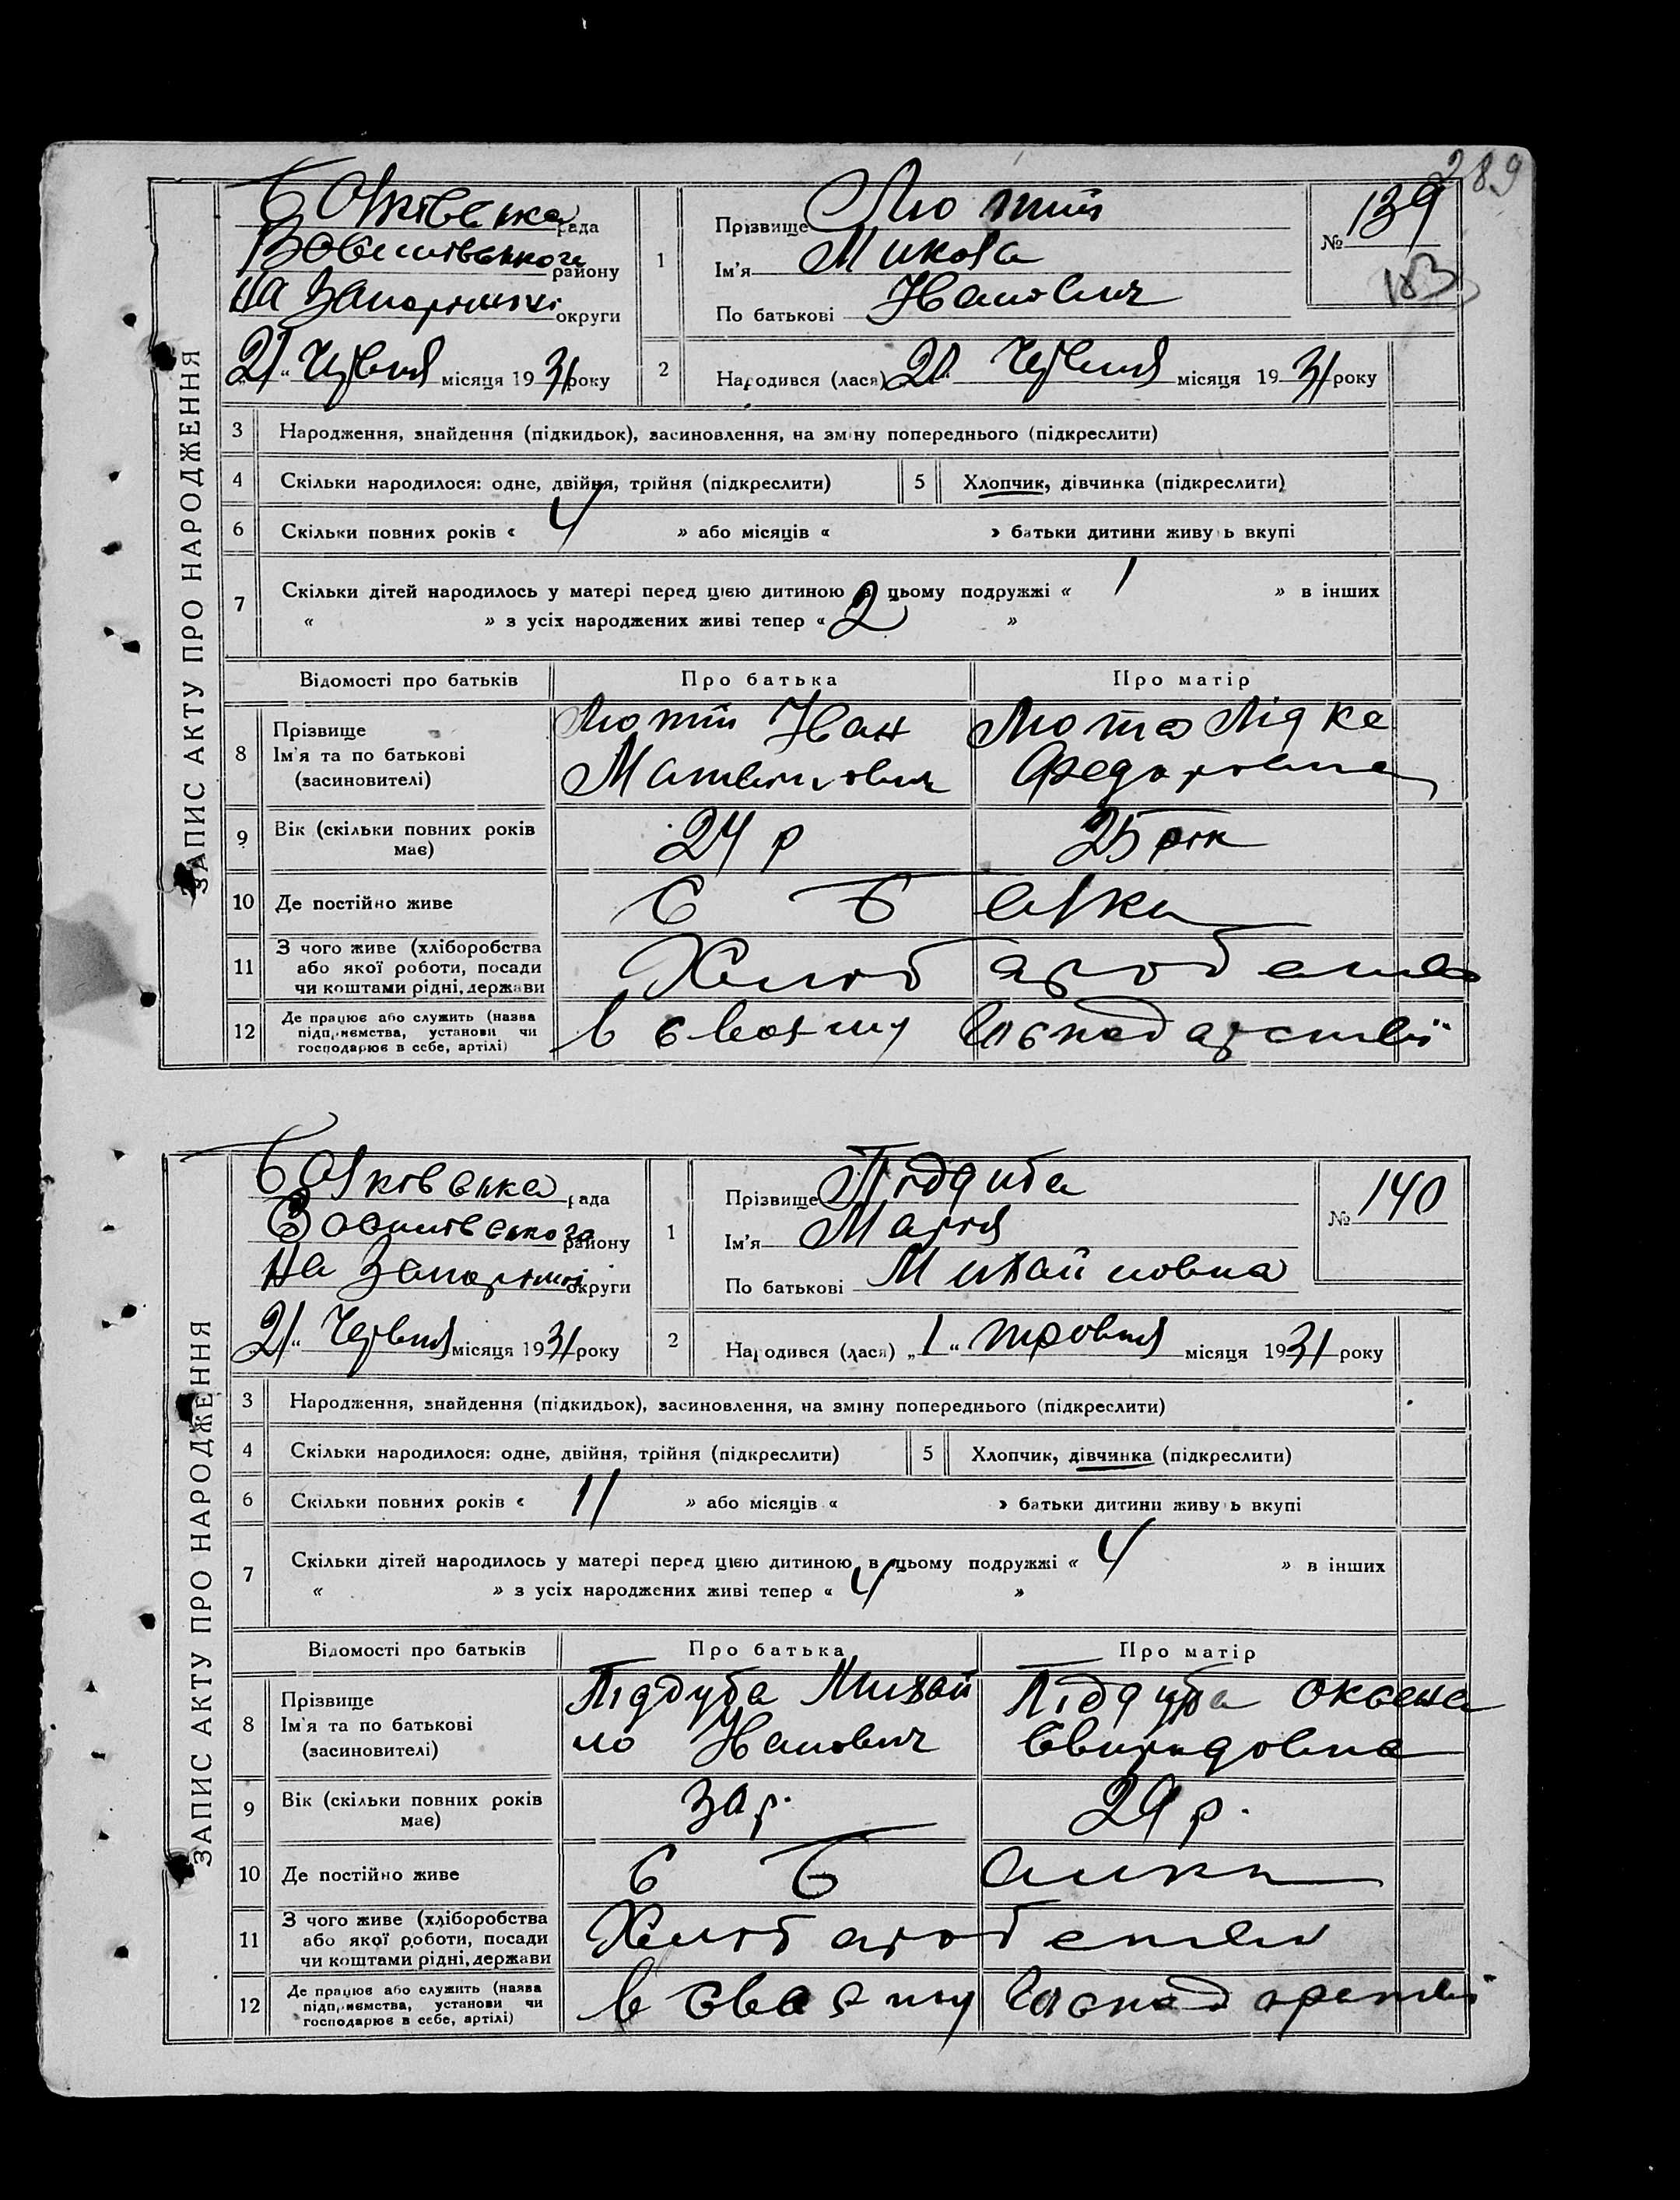 289
ЗАПИС АКТУ ПРО НАРОДЖЕННЯ
Балківська рада
району
на Запоріжжі округи
21 " Червня місяця 1931 року
1 Прізвище Лютий
Ім'я Микола
По батькові Іванович
№ 139
183
2 Народився (лася) 20 " Червня місяця 1931 року
3 Народження, знайдення (підкидьок), засиновлення, на зміну попереднього (підкреслити)
4 Скільки народилося: одне, двійня, трійня (підкреслити) 5 Хлопчик, дівчинка (підкреслити)
6 Скільки повних років « 4 » або місяців « » батьки дитини живуть вкупі
7 Скільки дітей народилось у матері перед цією дитиною в цьому подружжі « 1 » в інших
« » з усіх народжених живі тепер « 2 »
Відомості про батьків Про батька Про матір
8 Прізвище
Ім'я та по батькові
(засиновителі)
Лютий Іван
Матвійович
Люта Лідке
Федоровна
9 Вік (скільки повних років
має)
24 р
25 рік
10 Де постійно живе С Балка
11 З чого живе (хліборобства
або якої роботи, посади
чи коштами рідні, держави
Хліборобство
12 Де працює або служить (назва
підприємства, установи чи
господарює в себе, артілі)
в своєму господарстві
ЗАПИС АКТУ ПРО НАРОДЖЕННЯ
Балківська рада
району
на Запоріжжі округи
21 " Червня місяця 1931 року
1 Прізвище Піддуба
Ім'я Марія
По батькові Михайловна
№ 140
2 Народився (лася) „1 " травня місяця 1931 року
3 Народження, знайдення (підкидьок), засиновлення, на зміну попереднього (підкреслити)
4 Скільки народилося: одне, двійня, трійня (підкреслити) 5 Хлопчик, дівчинка (підкреслити)
6 Скільки повних років « 11 » або місяців « » батьки дитини живуть вкупі
7 Скільки дітей народилось у матері перед цією дитиною в цьому подружжі « 4 » в інших
« » з усіх народжених живі тепер « 4 »
Відомості про батьків Про батька Про матір
8 Прізвище
Ім'я та по батькові
(засиновителі)
Піддуба Михай
ло Іванович
Піддуба Оксена
Свиридовна
9 Вік (скільки повних років
має)
30 р.
29 р.
10 Де постійно живе С Балка
11 З чого живе (хліборобства
або якої роботи, посади
чи коштами рідні, держави
Хліборобство
12 Де працює або служить (назва
підприємства, установи чи
господарює в себе, артілі)
в своєму господарстві